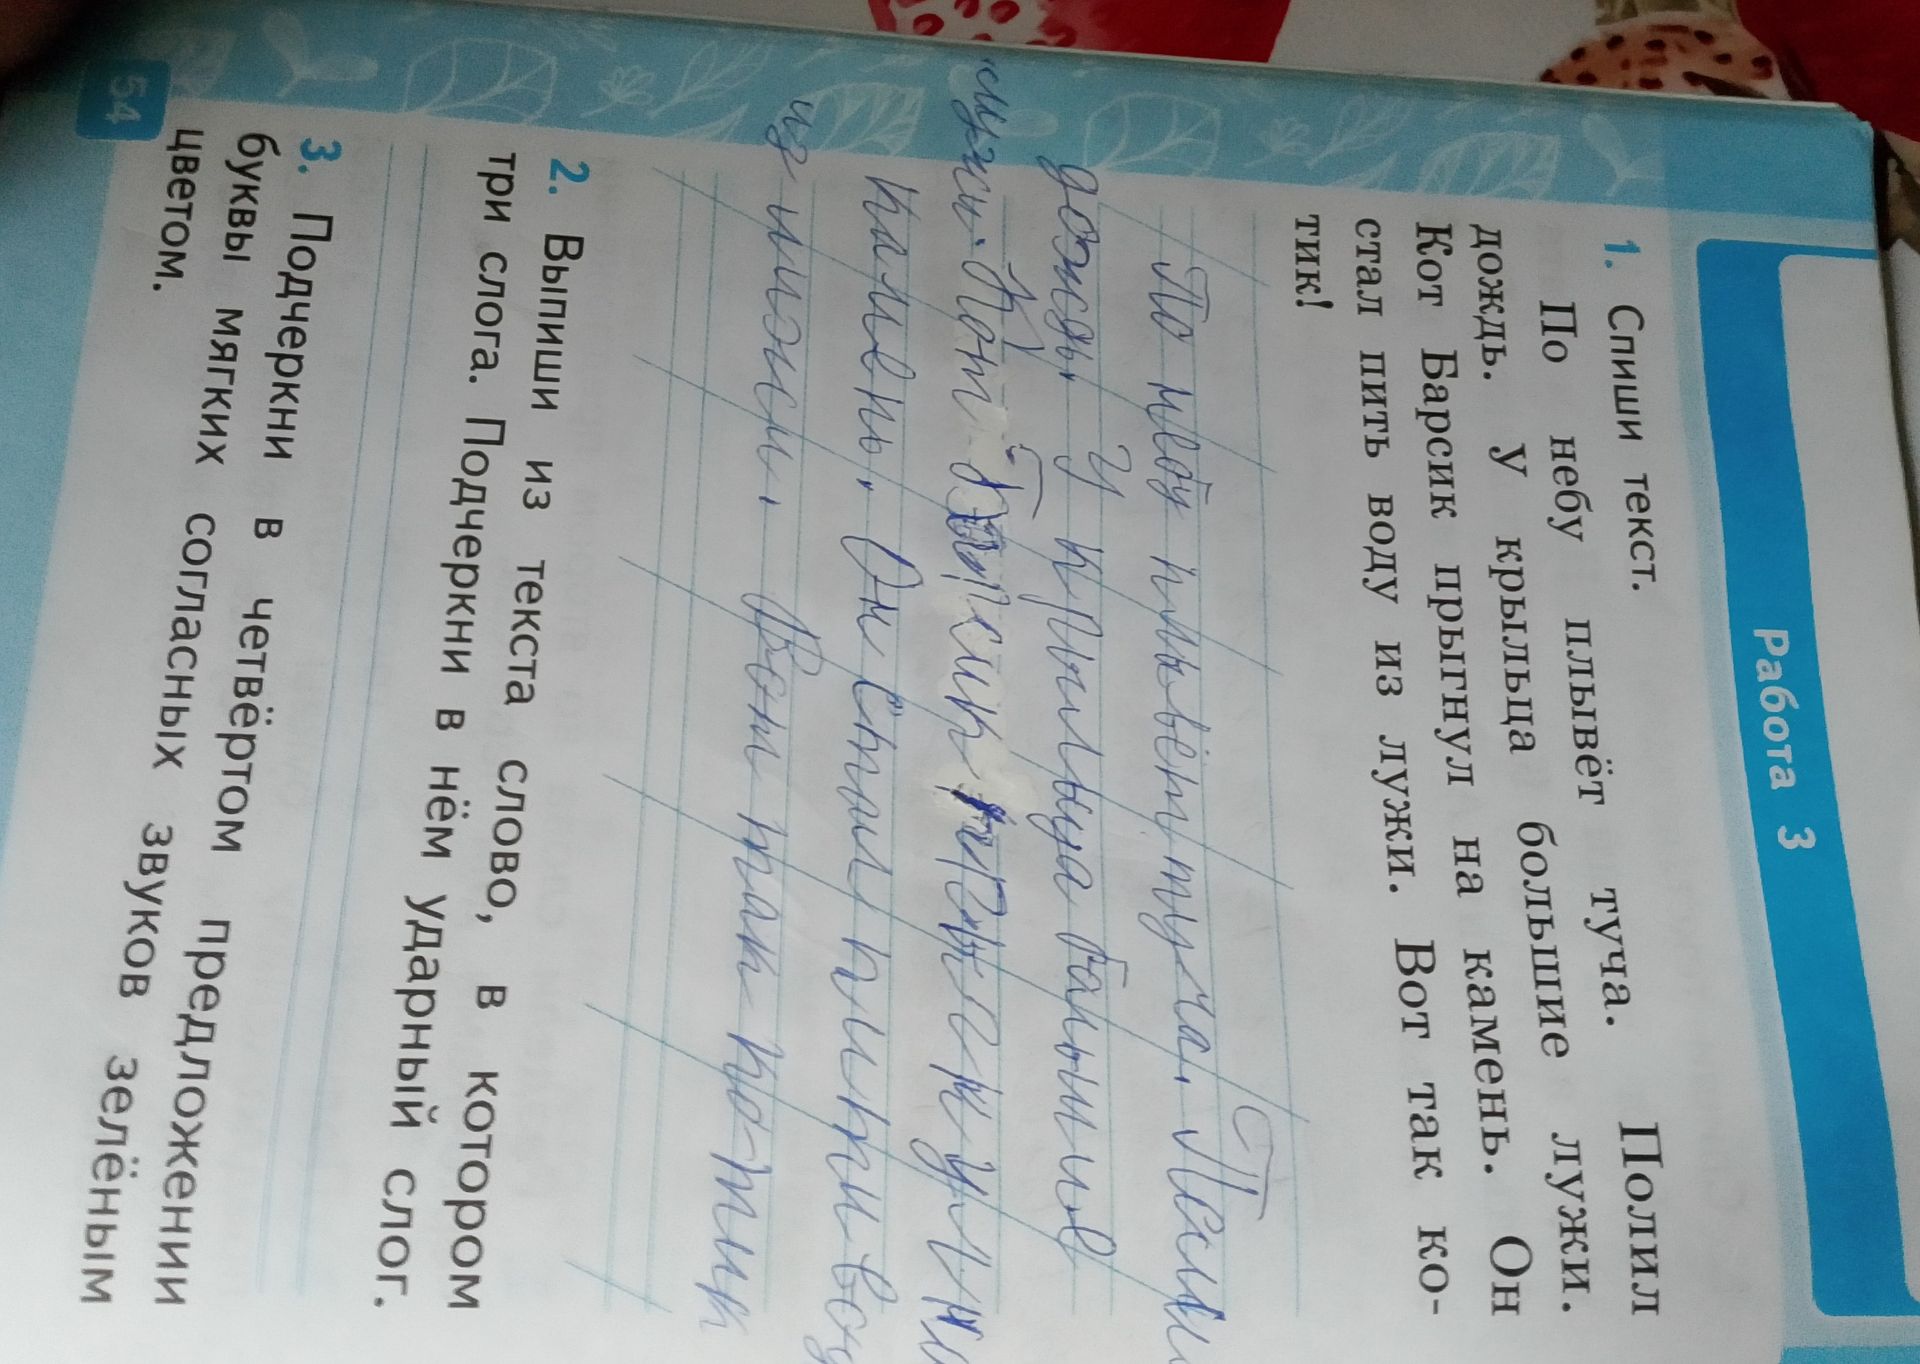 Работа 3
1. Спиши текст.
По небу плывёт туча. Полил
дождь. У крыльца большие лужи.
Кот Барсик прыгнул на камень. Он
стал пить воду из лужи. Вот так ко-
тик!
По небу плывёт туча.
дождь. У крыльца
Кот
Он стал пить
Вот так
2. Выпиши из текста слово, в котором
три слога. Подчеркни в нём ударный слог.
3. Подчеркни в четвёртом предложении
буквы мягких согласных звуков зелёным
цветом.
54